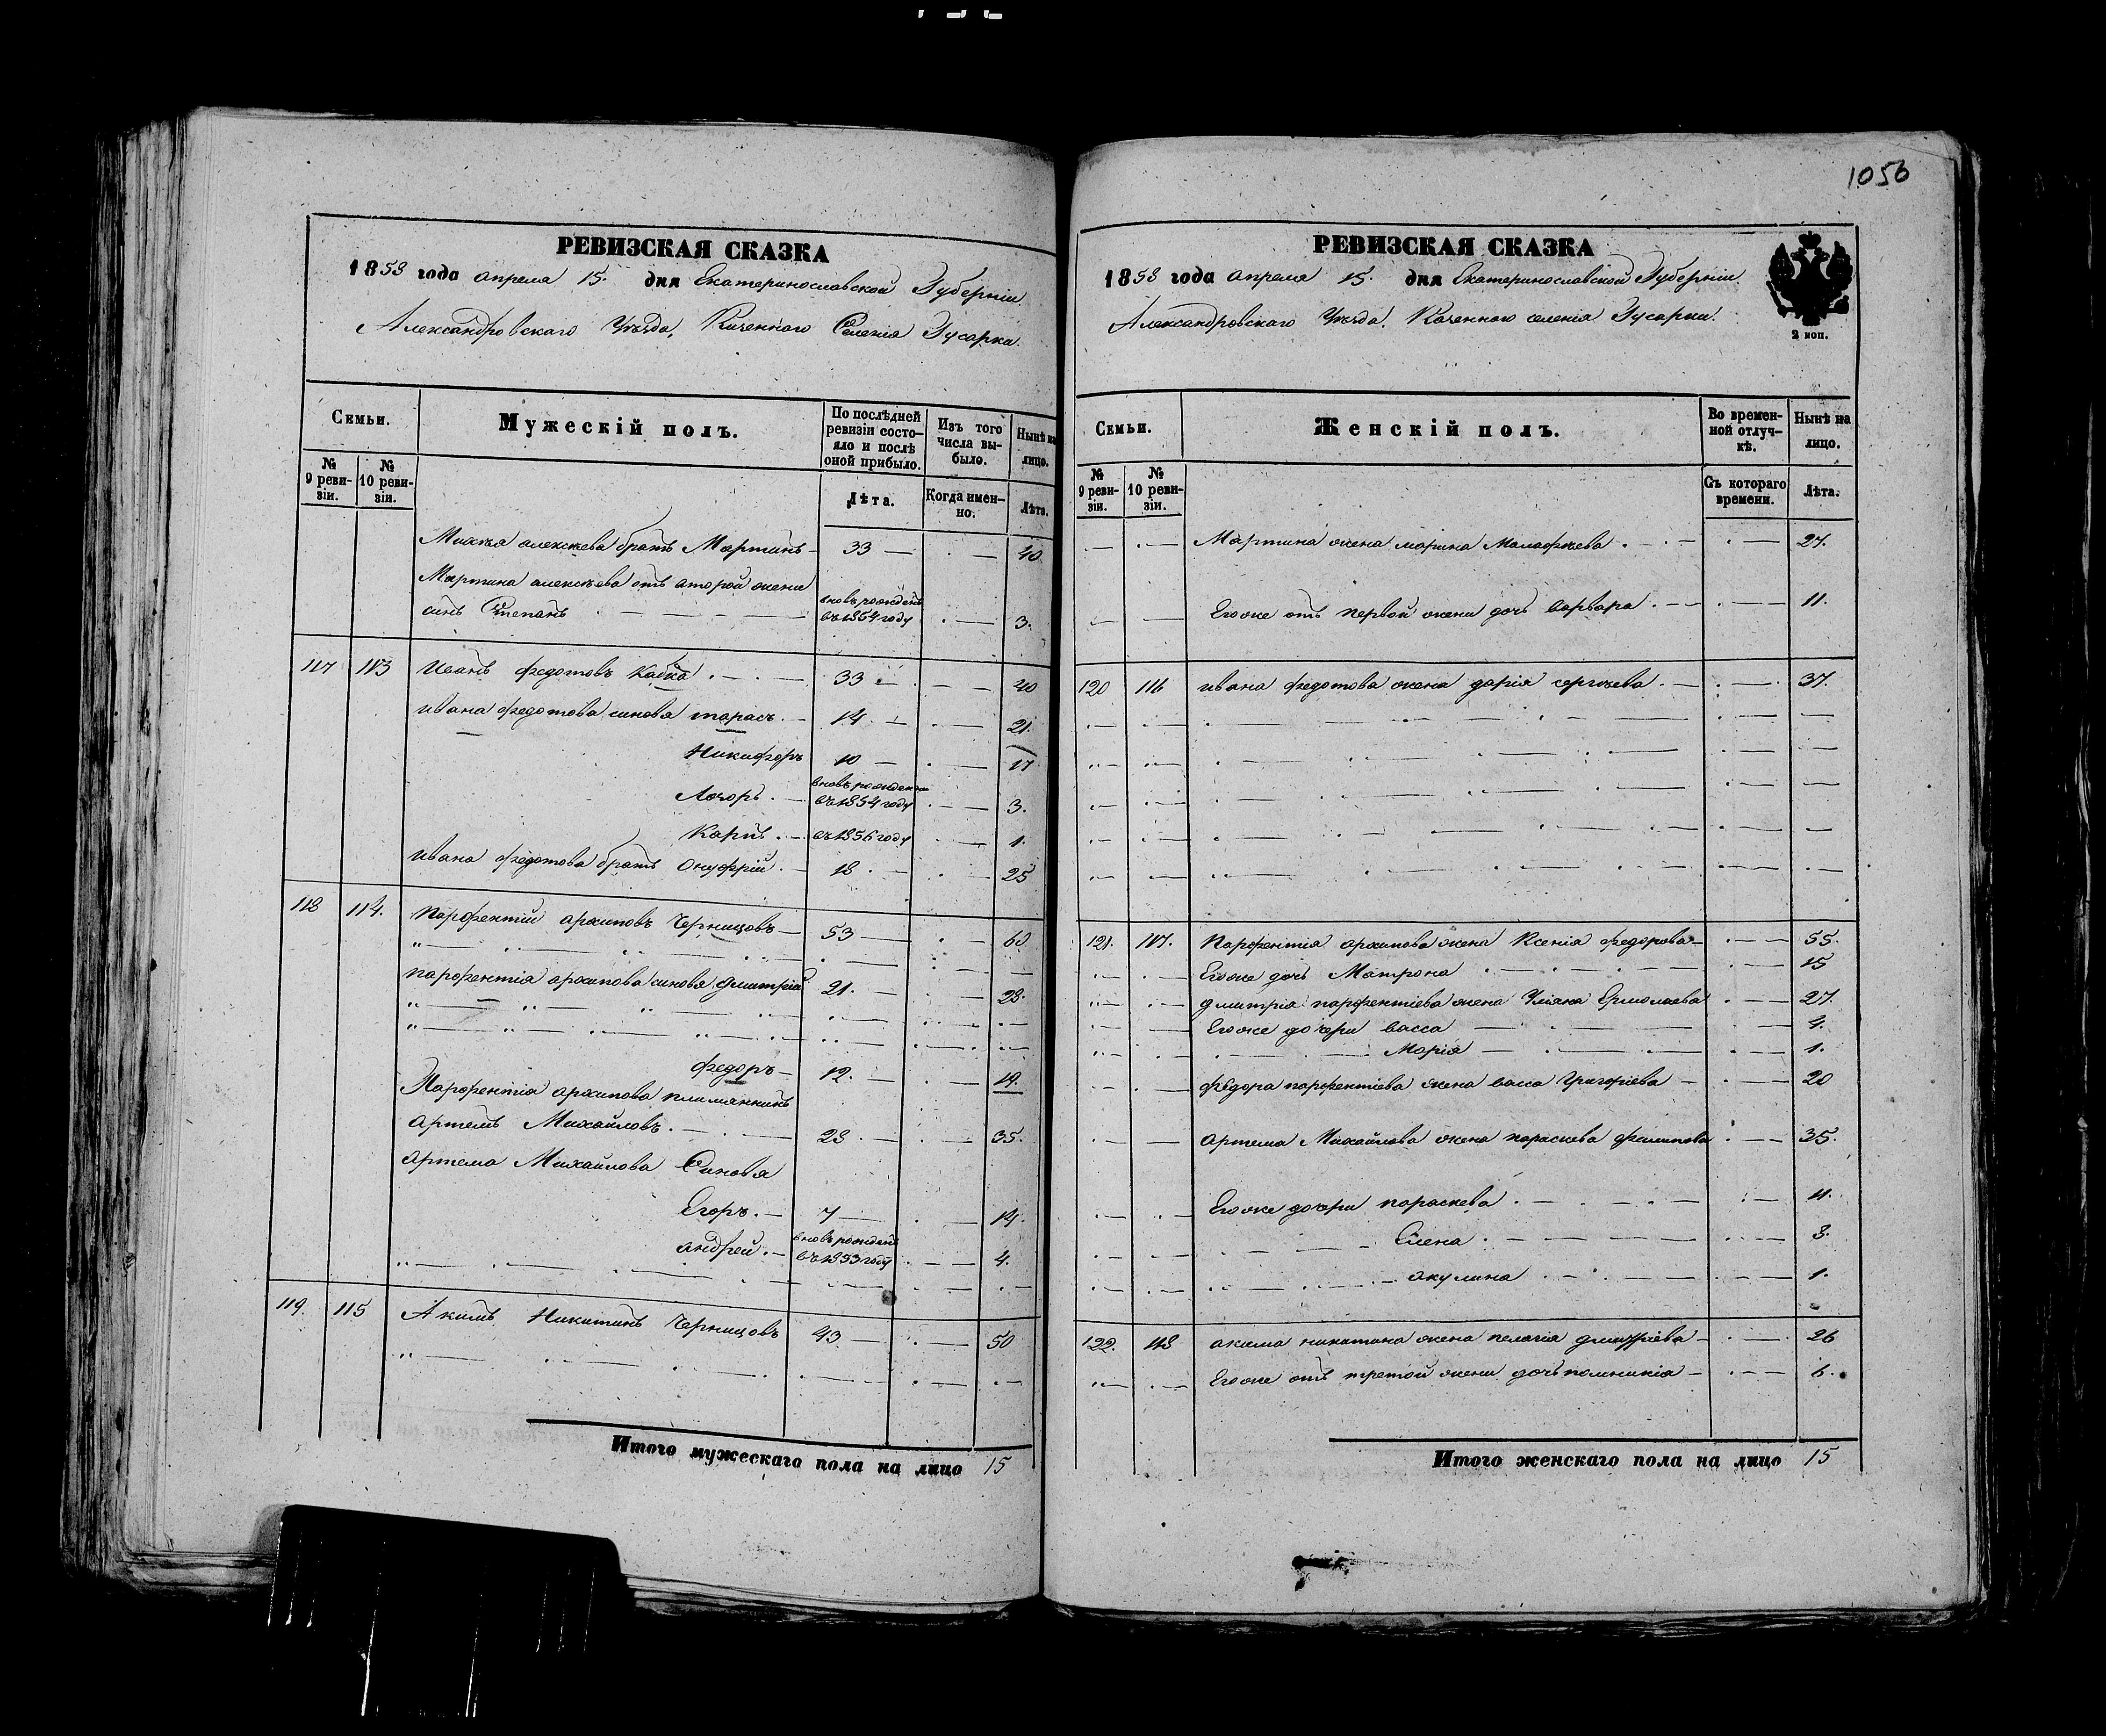 1056
РЕВИЗСКАЯ СКАЗКА
1858 года апреля 15. дня Екатеринославской Губернии
Александровскаго Уезда, Казеннаго Селения Гусарки.
Семьи.
Мужескій полъ.
По послѣдней ревизіи состояло и послѣ оной прибыло.
Изъ того числа выбыло.
Нынѣ на лицо.
№ 9 ревизіи.
№ 10 ревизіи.
Лѣта.
Когда именно.
Лѣта.
алексѣева братъ Мартинъ 33 40
Мартина алексѣева отъ второй жени
синъ Степанъ вновь рожденъ въ 1854 году 3.
117 113 Иванъ Федотовъ 33 40
Ивана Федотова синовя тарасъ 14 21.
Никифоръ 10 17
вновь рожденни въ 1854 году 3.
Карпъ въ 1856 году 1.
Ивана Федотова братъ Онуфрій 18 25
118 114. Парфентій архиповъ Черницовъ 53 60
парфентія архипова синовя Дмитрій 21. 28.
Федоръ 12. 19.
Парфентія архипова племянникъ
Артемъ Михайловъ 28 35.
Артема Михайлова Синовя
Егоръ 7 14.
андрей вновь рожденъ въ 1853 году 4.
119. 115 Акимъ Никитинъ Черницовъ 43 50
Итого мужескаго пола на лицо 15
РЕВИЗСКАЯ СКАЗКА
1858 года апреля 15. дня Екатеринославской Губерніи
Александровскаго Уезда, Казеннаго селенія Гусарки.
2 коп.
Семьи.
Женскій полъ.
Во временной отлучкѣ.
Нынѣ на лицо.
№ 9 ревизіи.
№ 10 ревизіи.
Съ котораго времени.
Лѣта.
Мартина жена марина Малафѣева 27.
Егоже отъ первой жени дочь варвара 11.
120 116 ивана Федотова жена дарія сергѣева 37.
121. 117. Парфентія архипова жена Ксенія Федорова 55.
Егоже дочь Матрона 15
Дмитрія парфентіева жена Уляна Ермолаева 27.
Егоже дочери васса 4.
Марія 1.
Федора парфентіева жена васса Григоріева 20
Артема Михайлова жена параскева филипова 35.
Егоже дочери параскева 11.
Елена 8.
акулина 1.
122. 118 акима никитина жена пелагія дмитріева 26
Егоже отъ третой жени дочь 6.
Итого женскаго пола на лицо 15